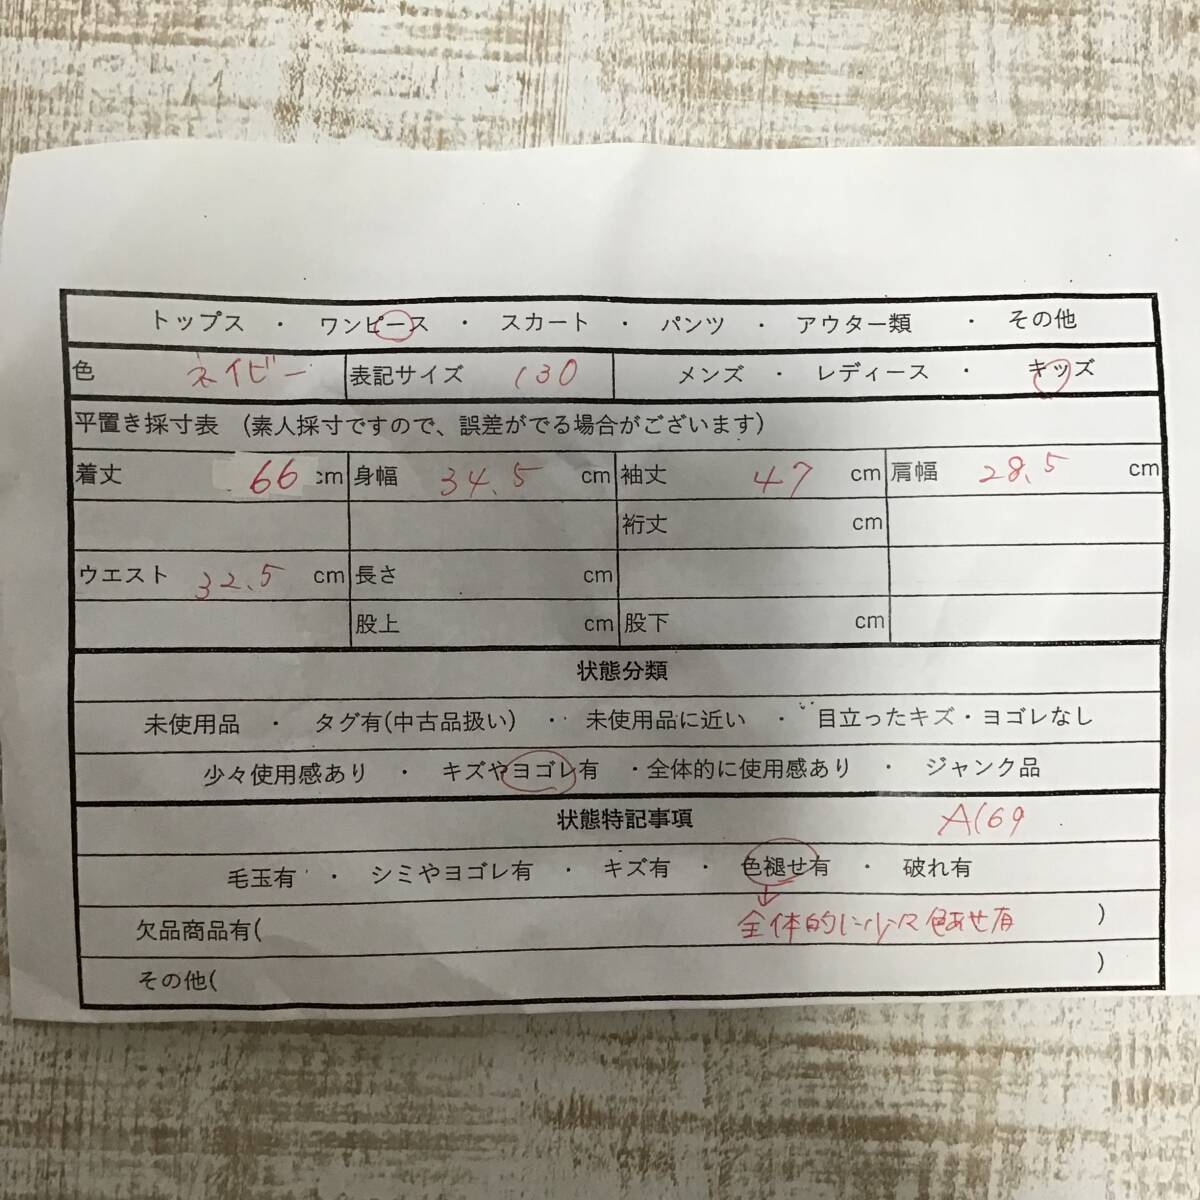 トップス ・ ワンピース ・ スカート ・ パンツ ・ アウター類 ・ その他
色 ネイビー 表記サイズ 130 メンズ ・ レディース ・ キッズ
平置き採寸表 (素人採寸ですので、誤差がでる場合がございます)
着丈 66 cm 身幅 34.5 cm 袖丈 47 cm 肩幅 28.5 cm
裄丈 cm
ウエスト 32.5 cm 長さ cm
股上 cm 股下 cm
状態分類
未使用品 ・ タグ有(中古品扱い) ・ 未使用品に近い ・ 目立ったキズ・ヨゴレなし
少々使用感あり ・ キズやヨゴレ有 ・全体的に使用感あり ・ ジャンク品
状態特記事項 A169
毛玉有 ・ シミやヨゴレ有 ・ キズ有 ・ 色褪せ有 ・ 破れ有
欠品商品有( 全体的に少々色あせ有 )
その他( )